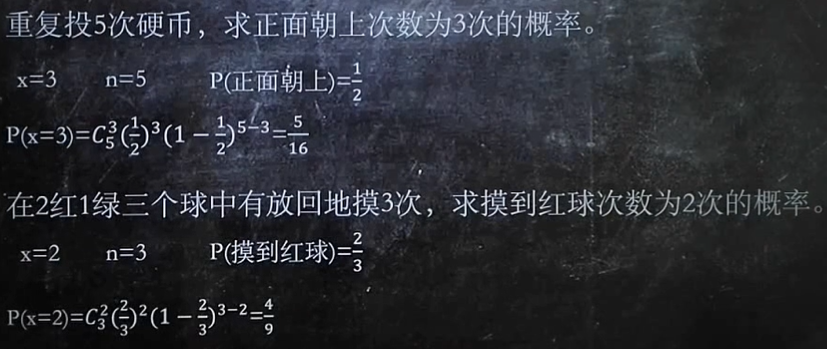 重复投5次硬币，求正面朝上次数为3次的概率。
x=3 n=5 P(正面朝上)=\frac{1}{2}
P(x=3)=C_5^3(\frac{1}{2})^3(1-\frac{1}{2})^{5-3}=\frac{5}{16}
在2红1绿三个球中有放回地摸3次，求摸到红球次数为2次的概率。
x=2 n=3 P(摸到红球)=\frac{2}{3}
P(x=2)=C_3^2(\frac{2}{3})^2(1-\frac{2}{3})^{3-2}=\frac{4}{9}